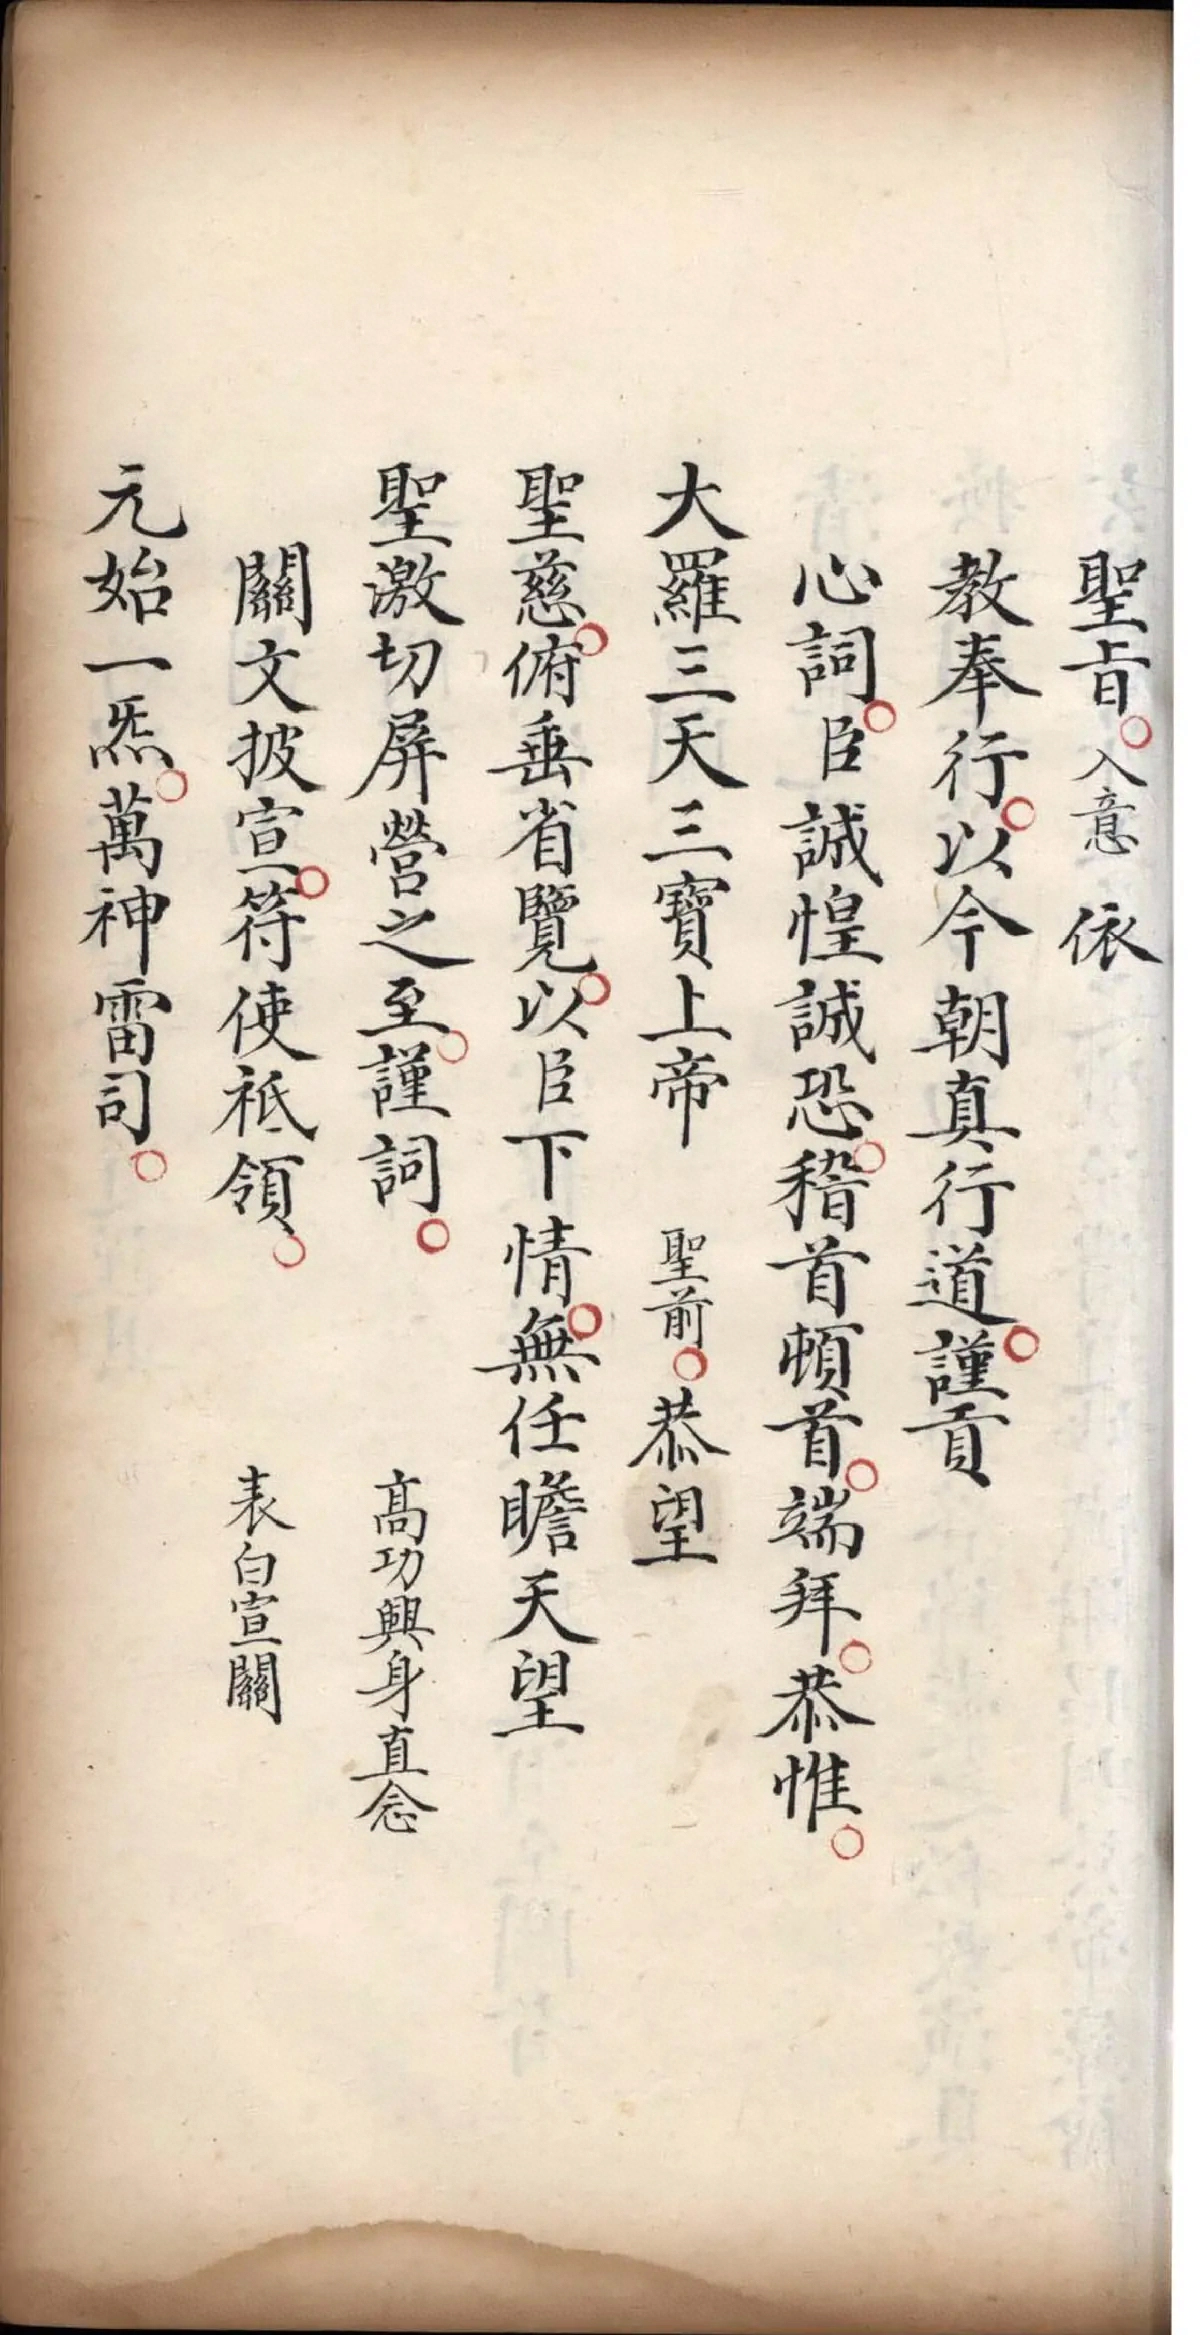 聖旨○入意 依
教奉行○以今朝真行道○謹貢
心詞○臣誠惶誠恐○稽首頓首○端拜○恭惟○
大羅三天三寶上帝 聖前○恭望
聖慈○俯垂省覽○以臣下情○無任瞻天望
聖激切屏營之至○謹詞○ 高功興身直念
關文披宣○符使祗領○ 表白宣關
元始一炁○萬神雷司○